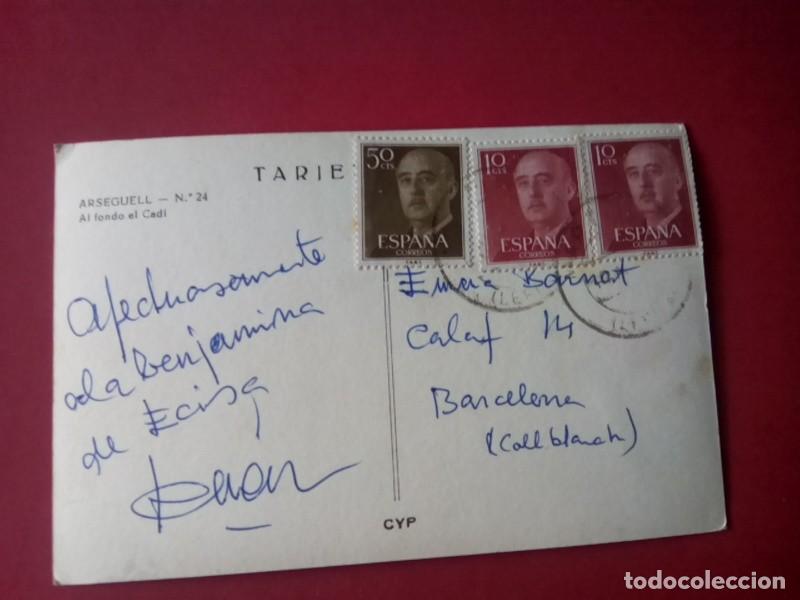 TARJE
ARSEGUELL — N.° 24
Al fondo el Cadí
50 CTS
ESPAÑA
CORREOS
10 CTS
ESPAÑA
CORREOS
10 CTS
ESPAÑA
CORREOS
Afectuosamente
a la benjamina
de Ecisa
Calaf 14
Barcelona
(Collblanch)
CYP
todocoleccion
todocoleccion.net